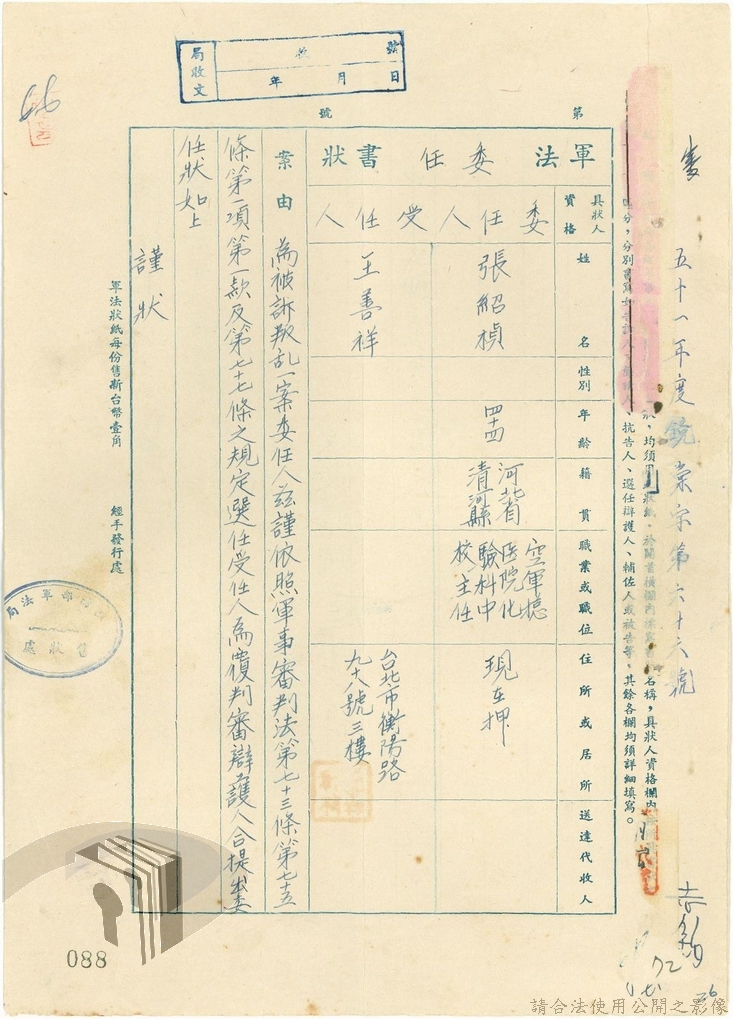 局收文
號
年 月 日
第 號
五十一年度 字第六十六號
軍法委任書狀
具狀人資格
姓名
性別
年齡
籍貫
職業或職位
住所或居所
送達代收人
委任人
張紹楨
四十四
河北省清河縣
空軍總医院化驗科中校主任
現在押
受任人
王善祥
台北市衡陽路九十八號三樓
案由
為被訴叛乱一案委任人茲謹依照軍事審判法第七十三條第七十五
條第一項第一款及第七十七條之規定選任受任人為覆判審辯護人合提出委
任狀如上
謹狀
軍法狀紙每份售新台幣壹角
經手發行處
抗告人、選任辯護人、輔佐人或被告等，其餘各欄均須詳細填寫。
名稱，具狀人資格欄內
軍法局
售狀處
088
72
26
請合法使用公開之影像